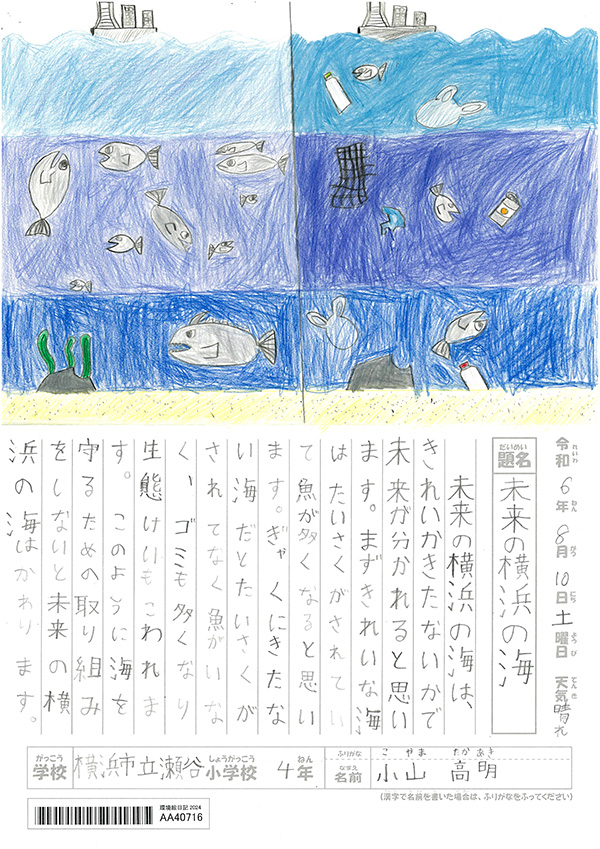 令和6年8月10日土曜日 天気晴れ
れいわ ねん がつ にち ようび てんき
だいめい
題名 未来の横浜の海
未来の横浜の海は、
きれいかきたないかで
未来が分かれると思い
ます。まずきれいな海
はたいさくがされてい
て魚が多くなると思い
ます。ぎゃくにきたな
い海だとたいさくが
されてなく魚がいな
く、ゴミも多くなり
生態けいもこわれま
す。このように海を
守るための取り組み
をしないと未来の横
浜の海はかわります。
がっこう しょうがっこう ねん
学校 横浜市立瀬谷小学校 4年
ふりがな こやま たかあき
なまえ
名前 小山 高明
(漢字で名前を書いた場合は、ふりがなをふってください)
環境絵日記 2024
AA40716